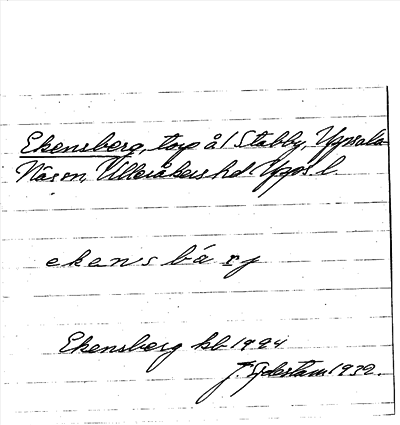 Ekensberg, torp å/ Stabby, Uppsala-
Näs sn, Ulleråkers hd Upps. l.
ekensbárj
Ekensberg kb 1924
1932.